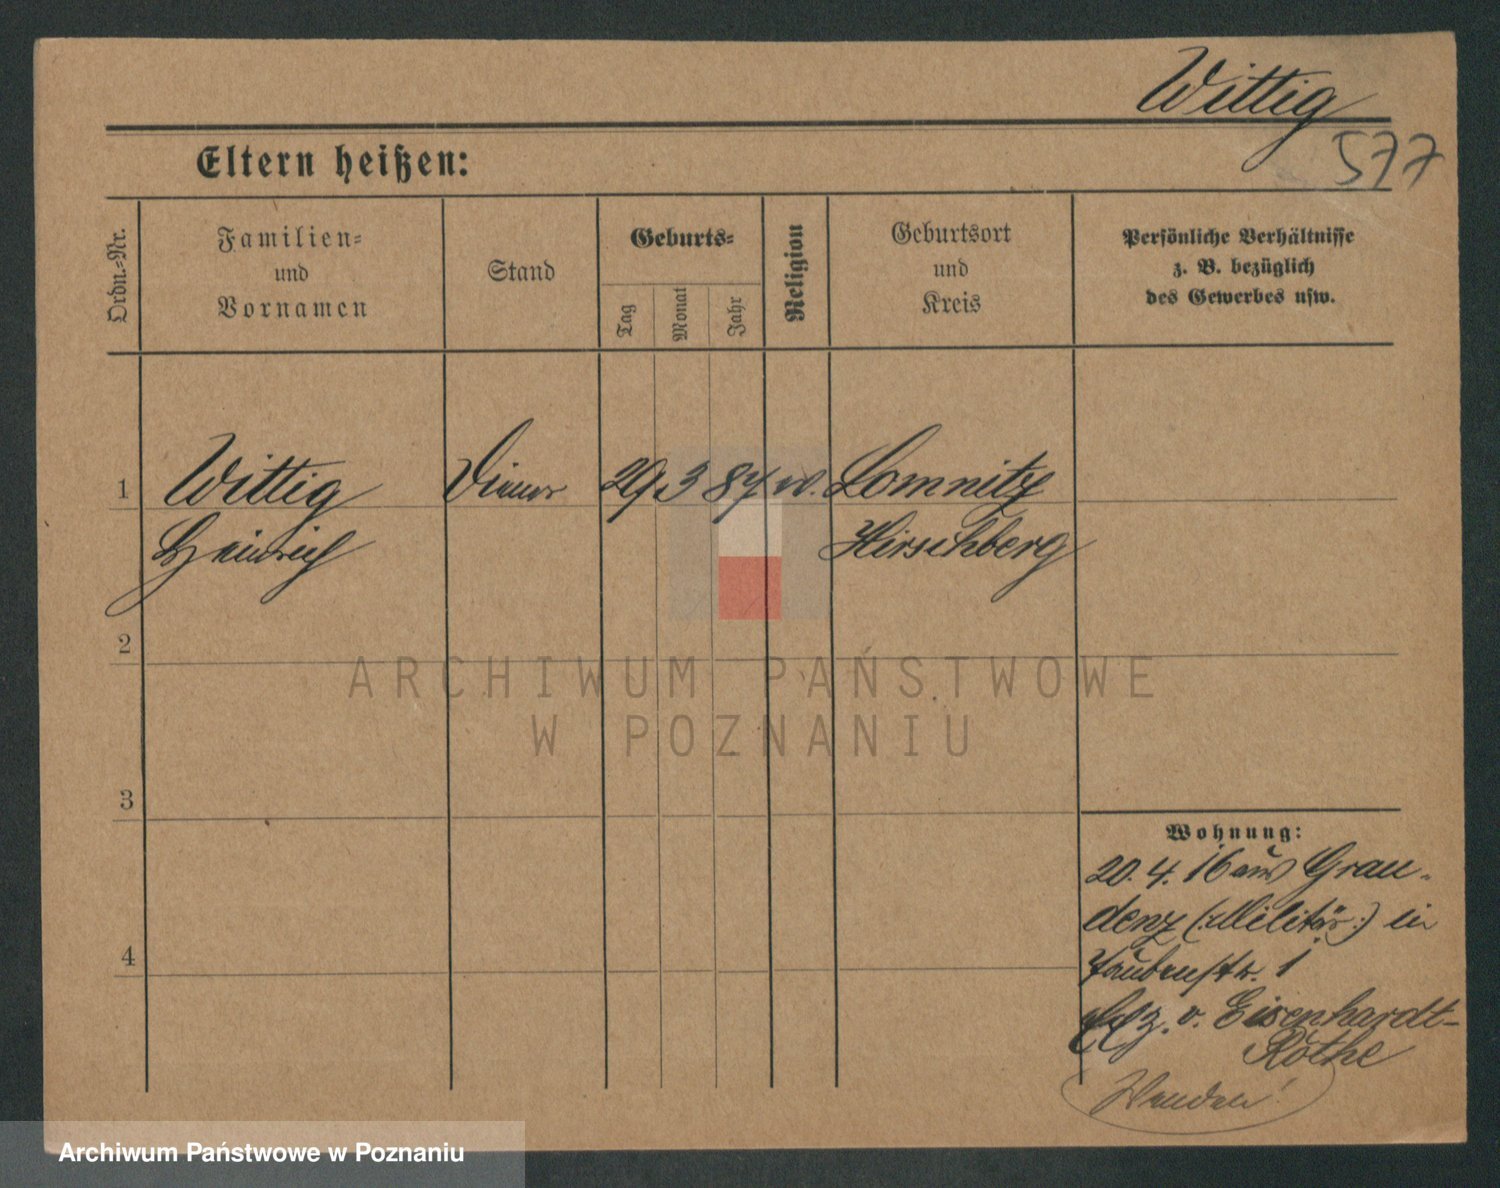 Wittig
577
Eltern heißen:
Ordn.-Nr.
Familien-
und
Vornamen
Stand
Geburts-
Tag
Monat
Jahr
Religion
Geburtsort
und
Kreis
Persönliche Verhältnisse
z. B. bezüglich
des Gewerbes usw.
1
Wittig
Heinrich
Diener
29 3 87
Lomnitz
Hirschberg
2
3
4
ARCHIWUM PAŃSTWOWE
W POZNANIU
Wohnung:
20. 4. 16 aus Grau-
denz (:Militär:) in
Taubenstr. 1
v. Eisenhardt-
Rothe
Wenden!
Archiwum Państwowe w Poznaniu